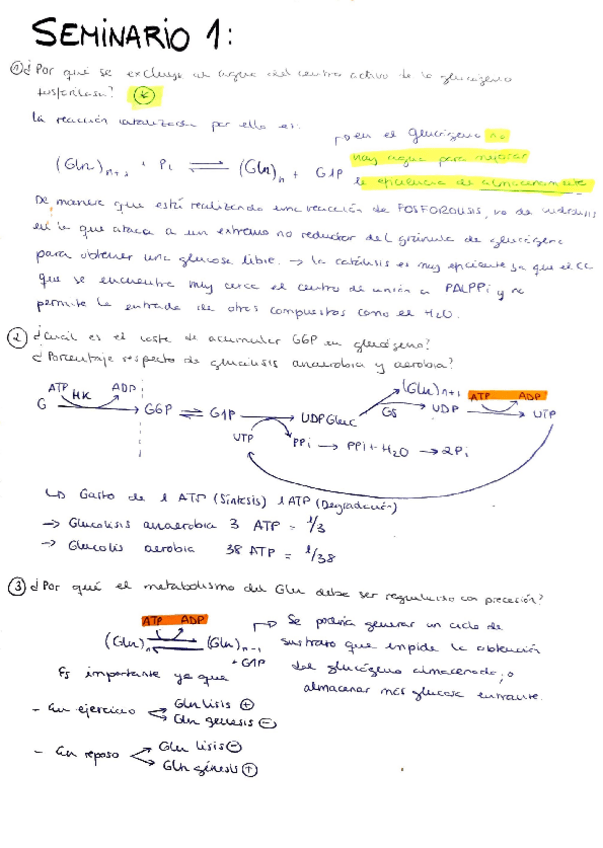 SEMINARIO 1:
① ¿Por qué se excluye el agua del centro activo de la glucógeno
fosforilasa? (*)
La reacción catalizada por ella es:
→ en el glucógeno no
hay agua para mejorar
la eficiencia de almacenamiento
(Gln)n+1 + Pi ⇌ (Gln)n + G1P
De manera que está realizando una reacción de FOSFOROLISIS, no de hidrolisis
en la que ataca a un extremo no reductor del gránulo de glucógeno
para obtener una glucosa libre. → la catálisis es muy eficiente ya que el CC
que se encuentra muy cerca el centro de unión a PALPPi y no
permite la entrada de otros compuestos como el H2O.
② ¿Cuál es el coste de acumular G6P en glucógeno?
¿Porcentaje respecto de glucólisis anaerobia y aerobia?
ATP HK ADP (Gln)n+1 ATP ADP
G → G6P ⇌ G1P → UDPGluc GS UDP → UTP
UTP PPi → PPi + H2O → 2Pi
↳ Gasto de 1 ATP (Síntesis) 1 ATP (Degradación)
→ Glucolisis anaerobia 3 ATP = 1/3
→ Glucolis aerobia 38 ATP = 1/38
③ ¿Por qué el metabolismo del Gln debe ser regulado con precesión?
ATP ADP
(Gln)n ⇌ (Gln)n-1
+ G1P
→ Se podría generar un ciclo de
sustrato que impide la obtención
del glucógeno almacenado, o
almacenar más glucosa entrante.
Es importante ya que
- En ejercicio → Gln lisis ⊕
→ Gln genesis ⊖
- En reposo → Gln lisis ⊖
→ Gln génesis ⊕